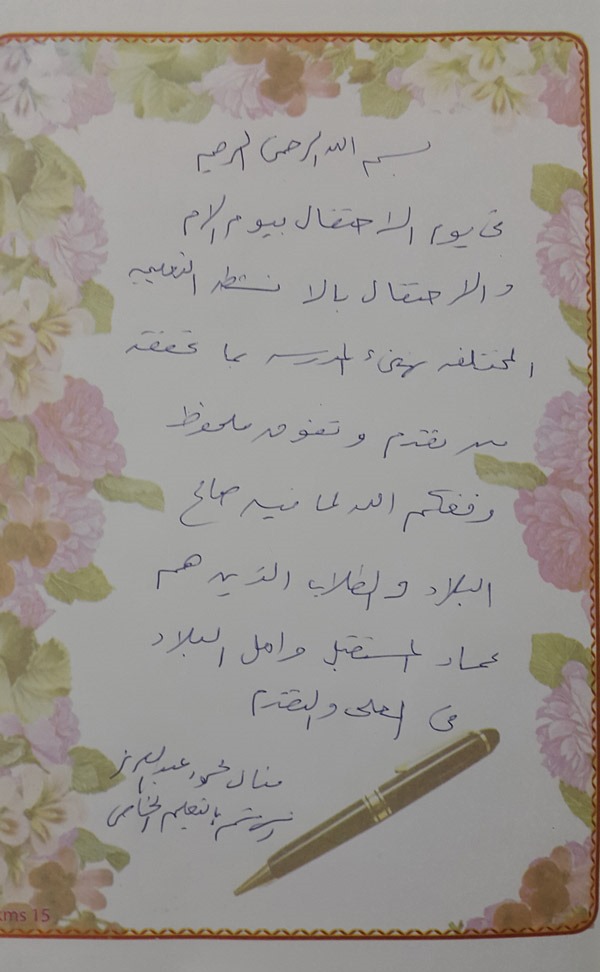 بسم الله الرحمن الرحيم
فى يوم الاحتفال بيوم الام
والاحتفال بالانشطه التعليميه
المختلفه نهنئ المدرسه بما تحققه
من تقدم وتفوق ملحوظ
وفقكم الله لما فيه صالح
البلاد والطلاب الذين هم
عماد المستقبل وامل البلاد
فى العلى والتقدم
منال محمود عبد العزيز
بالتعليم الخاص
kms 15